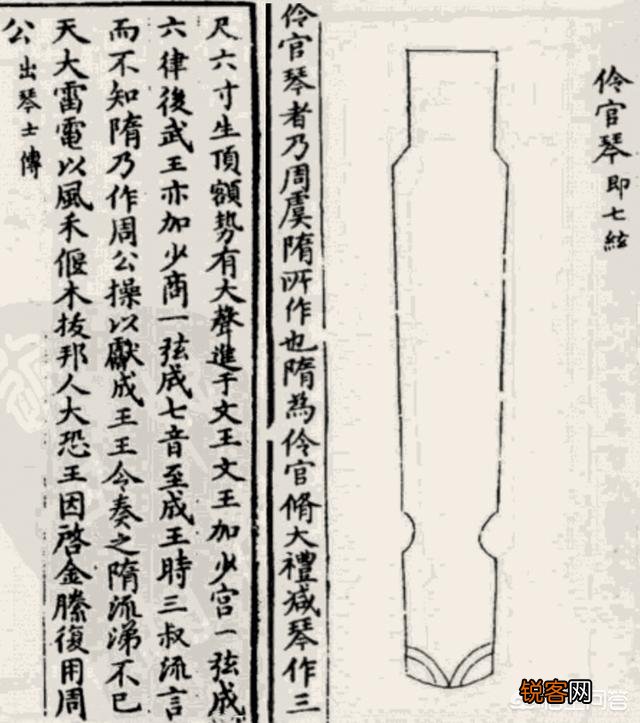 伶官琴即七絃
伶官琴者乃周虞隋所作也隋為伶官脩大禮减琴作三
尺六寸生頂額勢有大聲進于文王文王加少宮一弦成
六律後武王亦加少商一弦成七音至成王時三叔流言
而不知隋乃作周公操以獻成王王令奏之隋流涕不已
天大雷電以風禾偃木拔邦人大恐王因啓金縢復用周
公出琴士傳
锐客网